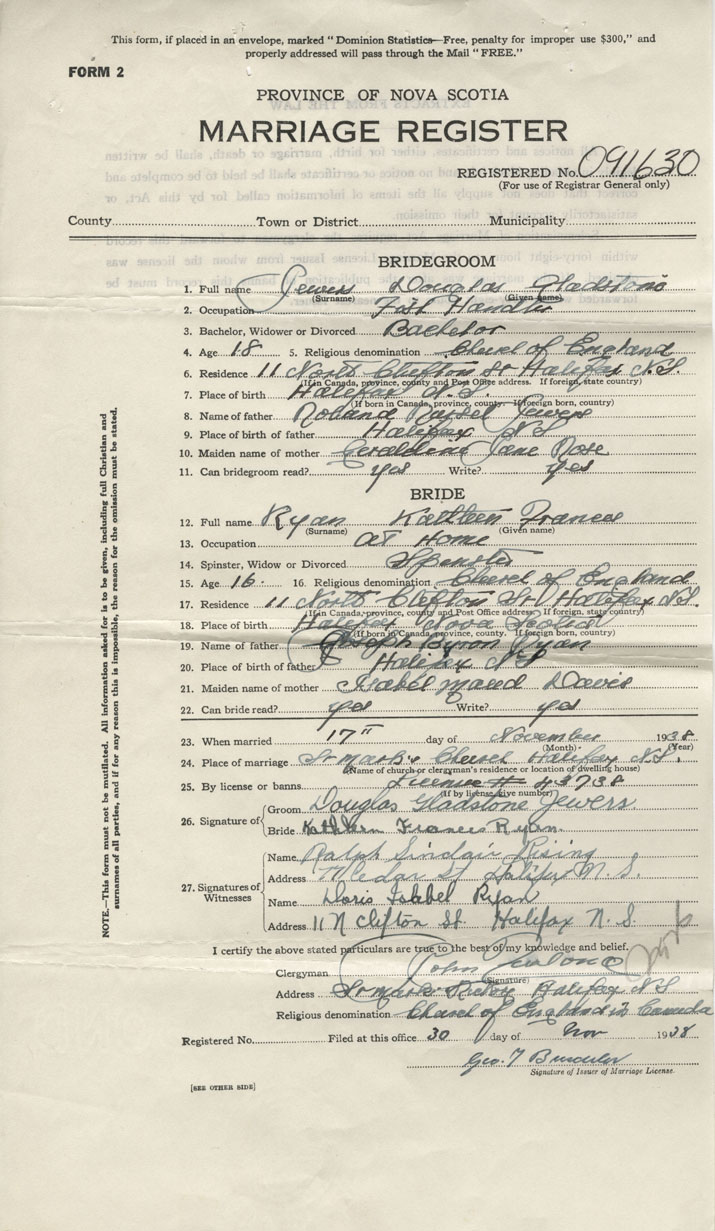 This form, if placed in an envelope, marked "Dominion Statistics—Free, penalty for improper use $300," and
properly addressed will pass through the Mail "FREE."
FORM 2
PROVINCE OF NOVA SCOTIA
MARRIAGE REGISTER
REGISTERED No. 091630
(For use of Registrar General only)
County Town or District Municipality
BRIDEGROOM
1. Full name Jewers Douglas Gladstone
(Surname) (Given name)
2. Occupation Fish Handler
3. Bachelor, Widower or Divorced Bachelor
4. Age 18 5. Religious denomination Church of England
6. Residence 11 North Clifton St Halifax N.S.
(If in Canada, province, county and Post Office address. If foreign, state country)
7. Place of birth Halifax N.S.
(If born in Canada, province, county. If foreign born, country)
8. Name of father Roland Jewers
9. Place of birth of father Halifax N S
10. Maiden name of mother Geraldine Jane Rose
11. Can bridegroom read? yes Write? yes
BRIDE
12. Full name Ryan Kathleen Frances
(Surname) (Given name)
13. Occupation at Home
14. Spinster, Widow or Divorced Spinster
15. Age 16. 16. Religious denomination Church of England
17. Residence 11 North Clifton St Halifax N.S.
(If in Canada, province, county and Post Office address. If foreign, state country)
18. Place of birth Halifax Nova Scotia
(If born in Canada, province, county. If foreign born, country)
19. Name of father Joseph Byron Ryan
20. Place of birth of father Halifax N S
21. Maiden name of mother Isabel Maud Davis
22. Can bride read? yes Write? yes
23. When married 17" day of November 1938
(Month) (Year)
24. Place of marriage St Mark's Church Halifax N.S.
(Name of church or clergyman's residence or location of dwelling house)
25. By license or banns License # 43738
(If by license, give number)
26. Signature of
Groom Douglas Gladstone Jewers
Bride Kathleen Frances Ryan.
27. Signatures of Witnesses
Name Ralph Sinclair Rising
Address St. Halifax N. S.
Name Doris Isabel Ryan
Address 11 N Clifton St. Halifax N. S.
I certify the above stated particulars are true to the best of my knowledge and belief.
Clergyman John
(Signature)
Address St Marks Rectory Halifax N S
Religious denomination Church of England in Canada
Registered No. Filed at this office 30 day of Nov 1938
Geo. T
Signature of Issuer of Marriage License.
[SEE OTHER SIDE]
NOTE.—This form must not be mutilated. All information asked for is to be given, including full Christian and
surnames of all parties, and if for any reason this is impossible, the reason for the omission must be stated.